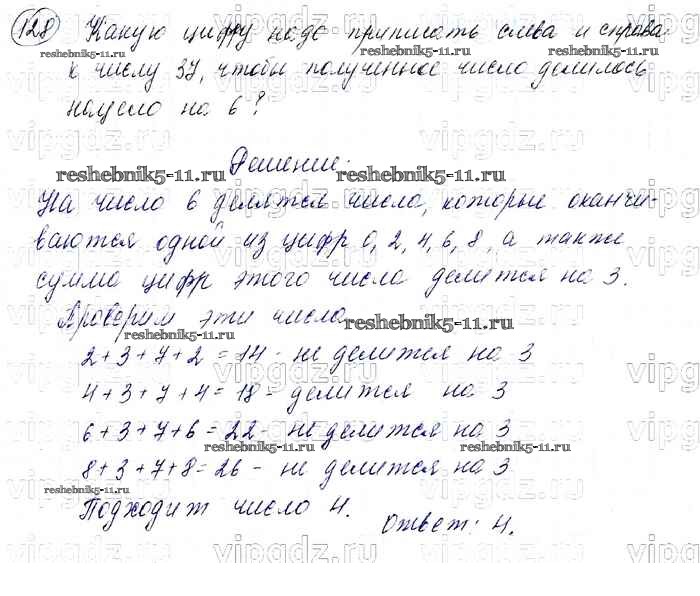 128 Какую цифру надо приписать слева и справа
к числу 37, чтобы полученное число делилось
нацело на 6?
Решение.
На число 6 делятся числа, которые оканчи-
ваются одной из цифр 0, 2, 4, 6, 8, а также
сумма цифр этого числа делится на 3.
Проверим эти числа
2+3+7+2=14 - не делится на 3
4+3+7+4=18 - делится на 3
6+3+7+6=22 - не делится на 3
8+3+7+8=26 - не делится на 3
Подходит число 4.
Ответ: 4.
reshebnik5-11.ru
vipgdz.ru